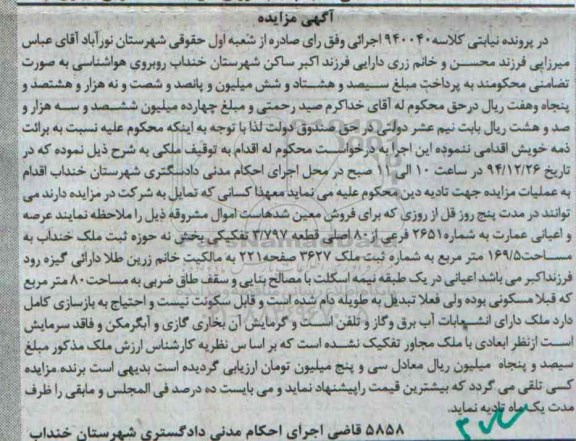 آگهی مزایده
در پرونده نیابتی کلاسه ۹۴۰۰۴۰ اجرائی وفق رای صادره از شعبه اول حقوقی شهرستان نورآباد آقای عباس
میرزایی فرزند محسن و خانم زری دارایی فرزند اکبر ساکن شهرستان خنداب روبروی هواشناسی به صورت
تضامنی محکومند به پرداخت مبلغ سیصد و هشتاد و شش میلیون و پانصد و شصت و نه هزار و هشتصد و
پنجاه وهفت ریال درحق محکوم له آقای خداکرم صید رحمتی و مبلغ چهارده میلیون ششصد و سه هزار و
صد و هشت ریال بابت نیم عشر دولتی در حق صندوق دولت لذا با توجه به اینکه محکوم علیه نسبت به برائت
ذمه خویش اقدامی ننموده این اجرا به درخواست محکوم له اقدام به توقیف ملکی به شرح ذیل نموده که در
تاریخ ۹۴/۱۲/۲۶ در ساعت ۱۰ الی ۱۱ صبح در محل اجرای احکام مدنی دادگستری شهرستان خنداب اقدام
به عملیات مزایده جهت تادیه دین محکوم علیه می نماید معهذا کسانی که تمایل به شرکت در مزایده دارند می
توانند در مدت پنج روز قبل از روزی که برای فروش معین شدهاست اموال مشروقه ذیل را ملاحظه نمایند عرصه
و اعیانی عمارت به شماره ۲۶۵۱ فرعی از ۸۰ اصلی قطعه ۳/۷۹۷ تفکیکی بخش نه حوزه ثبت ملک خنداب به
مساحت ۱۶۹/۵ متر مربع به شماره ثبت ملک ۳۶۲۷ صفحه ۲۲۱ به مالکیت خانم زرین طلا دارائی گیزه رود
فرزنداکبر می باشد اعیانی در یک طبقه نیمه اسکلت با مصالح بنایی و سقف طاق ضربی به مساحت ۸۰ متر مربع
که قبلا مسکونی بوده ولی فعلا تبدیل به طویله دام شده است و قابل سکونت نیست و احتیاج به بازسازی کامل
دارد ملک دارای انشعابات آب برق وگاز و تلفن است و گرمایش آن بخاری گازی و آبگرمکن و فاقد سرمایش
است ازنظر ابعادی با ملک مجاور تفکیک نشده است که بر اساس نظریه کارشناس ارزش ملک مذکور مبلغ
سیصد و پنجاه میلیون ریال معادل سی و پنج میلیون تومان ارزیابی گردیده است بدیهی است برنده مزایده
کسی تلقی می گردد که بیشترین قیمت راپیشنهاد نماید و می بایست ده درصد فی المجلس و مابقی را ظرف
مدت یک ماه تادیه نماید.
۵۸۵۸ قاضی اجرای احکام مدنی دادگستری شهرستان خنداب